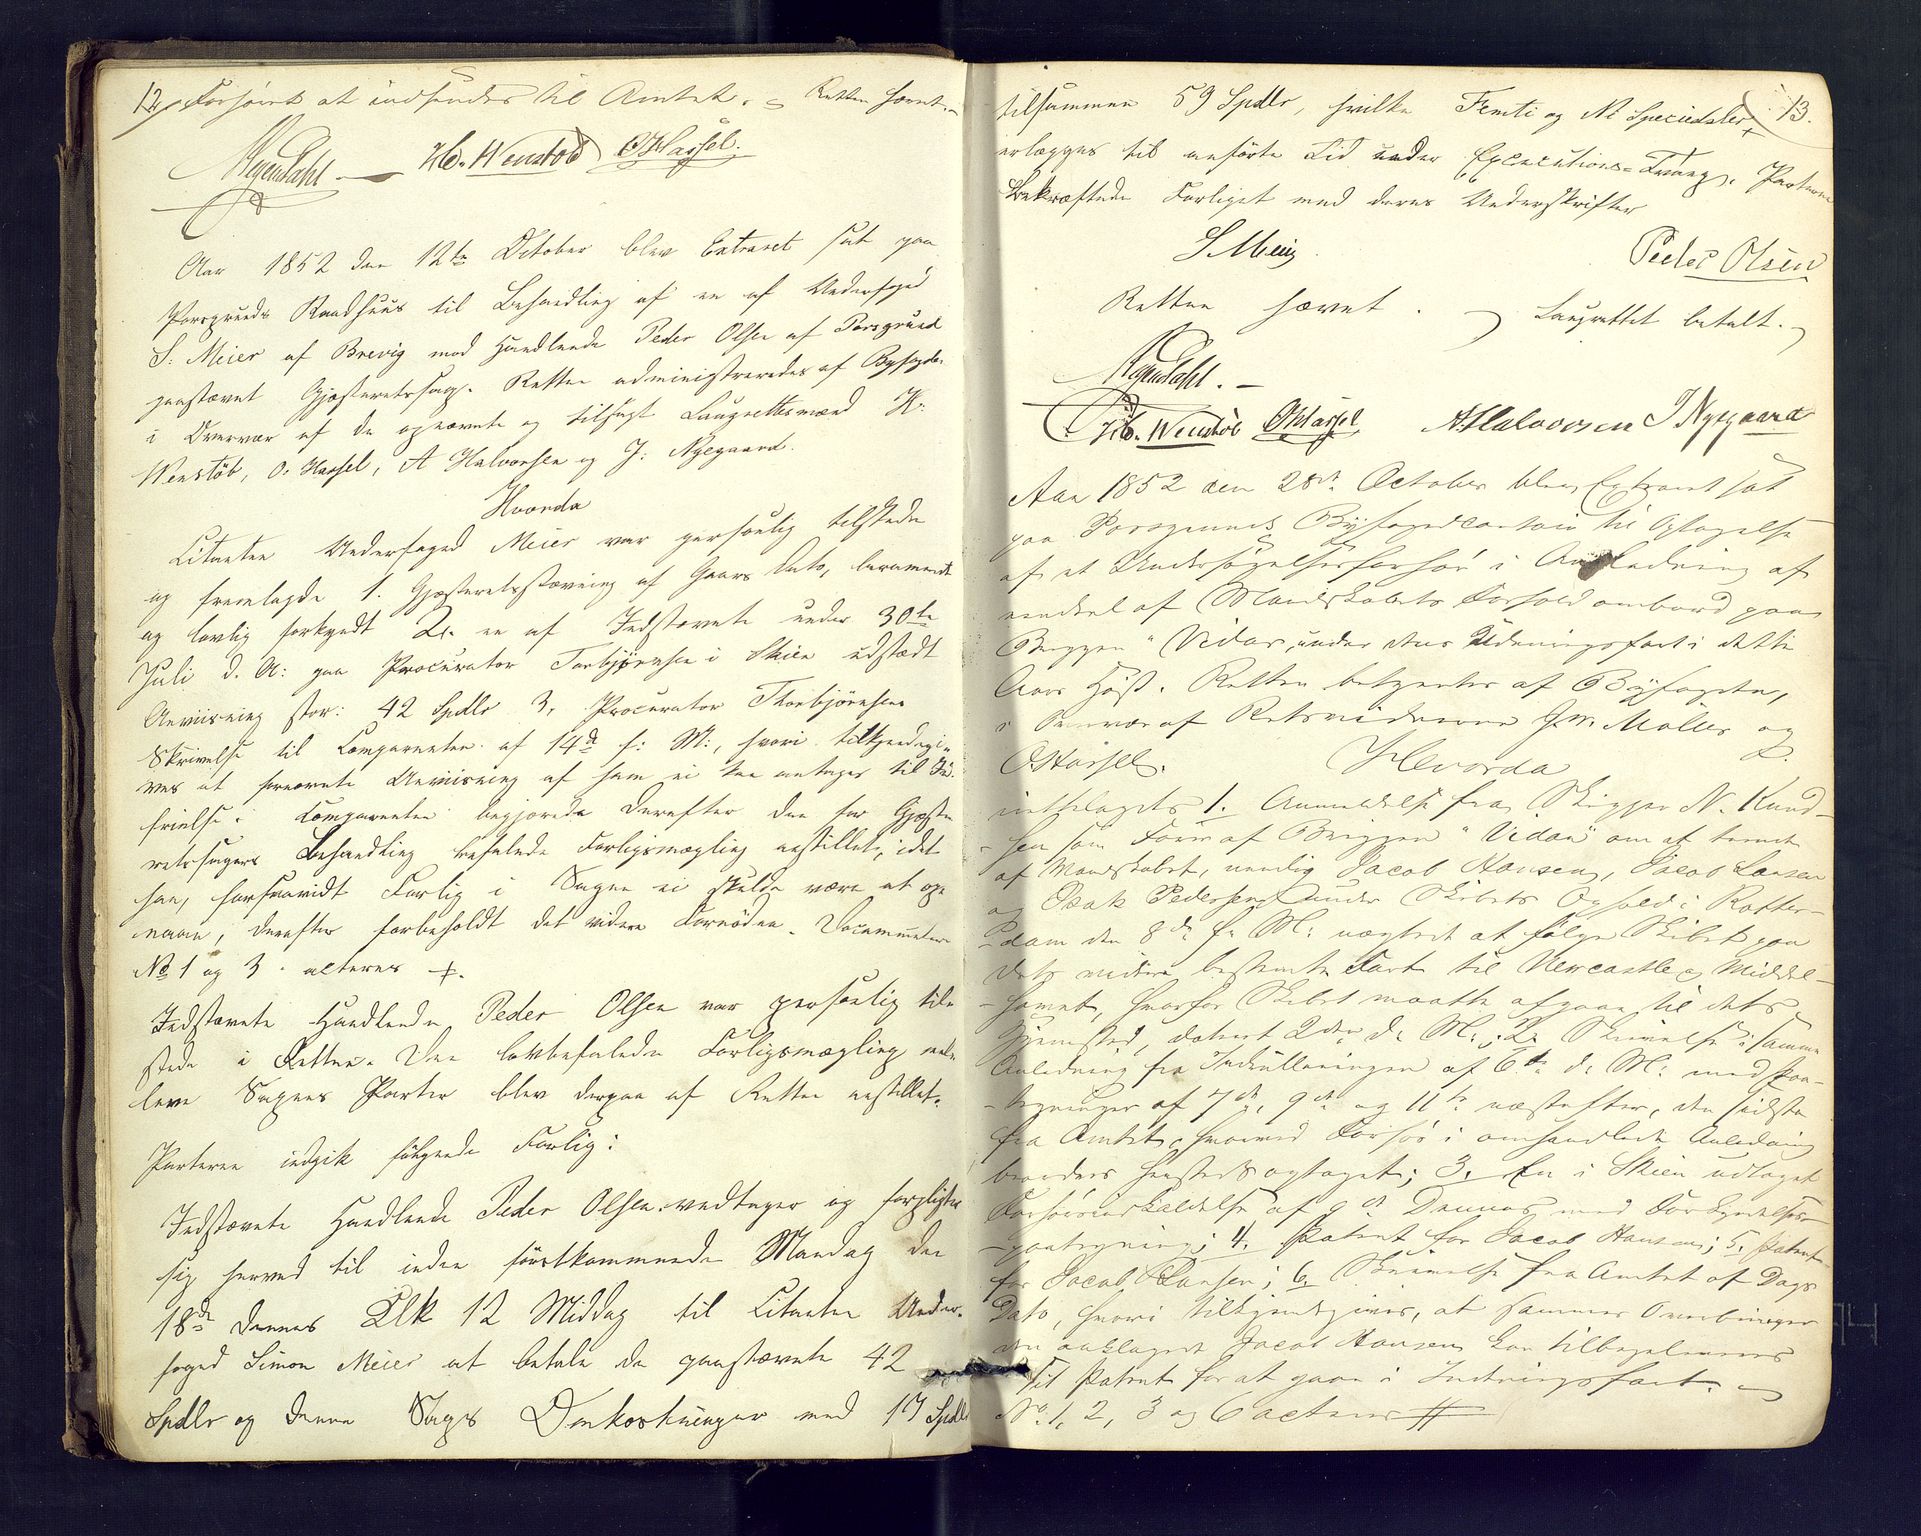 12
Forhöret at indsendes til Amtet. Retten hævet.
Ht. Wenstöb OHassel.
Aar 1852 den 12te October blev Extraret sat paa
Porsgrunds Raadhuus til Behandling af en af Underfoged
S. Meier af Brevig mod Handlende Peder Olsen af Porsgrund
paastævnt Gjæsteretssag. Retten administreredes af Byfogden
i Overvær af de opnævnte og tilsagte Laugrettesmænd H.
Wenstöb, O. Hassel, A Halvorsen og J. Nyegaard.
Hvorda
Citanten Underfoged Meier var personlig tilstede
og fremlagde 1. Gjæsteretsstævning af Gaars Dato, berammet
og lovlig forkyndt 2. en af Indstævnte under 30te
Juli d. A: paa Procurator Torbjörnsen i Skien udstædt
Anviisning stor: 42 Spdlr 3, Procurator Thorbjörnsens
Skrivelse til Comparenten af 14de f: M:, hvori tilkjendegi-
ves at fornævnte Anviisning af ham ei kan antages til Ind-
frielse. Comparenten begjærede derefter den for Gjæste
retssagers Behandling befalede Forligsmægling anstillet, idet
han, forsaavidt Forlig i Sagen ei skulde være at op-
naae, derefter forbeholdt det videre Fornödne. Documenterne
No 1 og 3. acteres
Indstævnte Handlende Peder Olsen var personlig til-
stede i Retten. Den lovbefalede Forligsmægling mel-
lem Sagens Parter blev derpaa af Retten anstillet.
Parterne indgik fölgende Forlig:
Indstævnte Handlende Peder Olsen vedtager og forpligter
sig herved til inden förstkommende Mandag den
18de dennes Klk 12 Middag til Citanten Under-
foged Simon Meier at betale de paastævnte 42
Spdlr og denne Sags Omkostninger med 17 Spdlr
13.
tilsammen 59 Spdlr, hvilke Femti og Ni Speciedaler
erlægges til anförte Tid under Executions-Tvang. Parterne
bekræftede Forliget med deres Underskrifter
SMeier
Peder Olsen
Retten hævet. Laugrettet betalt.
Ht. Wenstöb OHassel AHalvorsen J Nyegaard
Aar 1852 den 28de October blev Extraret sat
paa Porsgrunds Byfogedcontoir til Optagelse
af et Undersögelsesforhör i Anledning af
endeel af Mandskabets Forhold ombord paa
Briggen "Vidar" under dens Udeningsfart i dette
Aars Höst. Retten betjentes af Byfogden,
i Overvær af Retsvidnerne J. M. Möller og
O. Hassel.
Hvorda
1. Anmeldelse fra Skipper N. Knud-
sen som Förer af Briggen "Vidar" om at
af Mandskabet, nemlig Jacob Hansen, Jacob Larsen
og Isak Pedersen under Skibets Ophold i Rotter-
dam den 8de f. M: nægtede at fölge Skibet paa
dets videre bestemte Fart til Newcastle og Middel-
havnet, hvorfor Skibet maatte afgaae til dets
Hjemsted, dateret 2den d. M.; 2. Skrivelse i samme
Anledning fra Indrulleringen af 6te d. M: med Paa-
tegninger af 7de, 9de og 11te næstefter, den sidste
fra Amtet, hvorved Forhör i omhandlede Anledning
3. En i Skien udtaget
Forhörsindkaldelse af 9de Dennes med Forkyndelses-
paategning; 4. Patent for Jacob Hansen; 5. Patent
for Jacob Larsen; 6. Skrivelse fra Amtet af Dags
Dato, hvori tilkjendegives, at
den anklagede Jacob Hansen kan tilbageleveres
sit Patent for at gaae i Indtringsfart.
No. 1, 2, 3 og 6 acteres